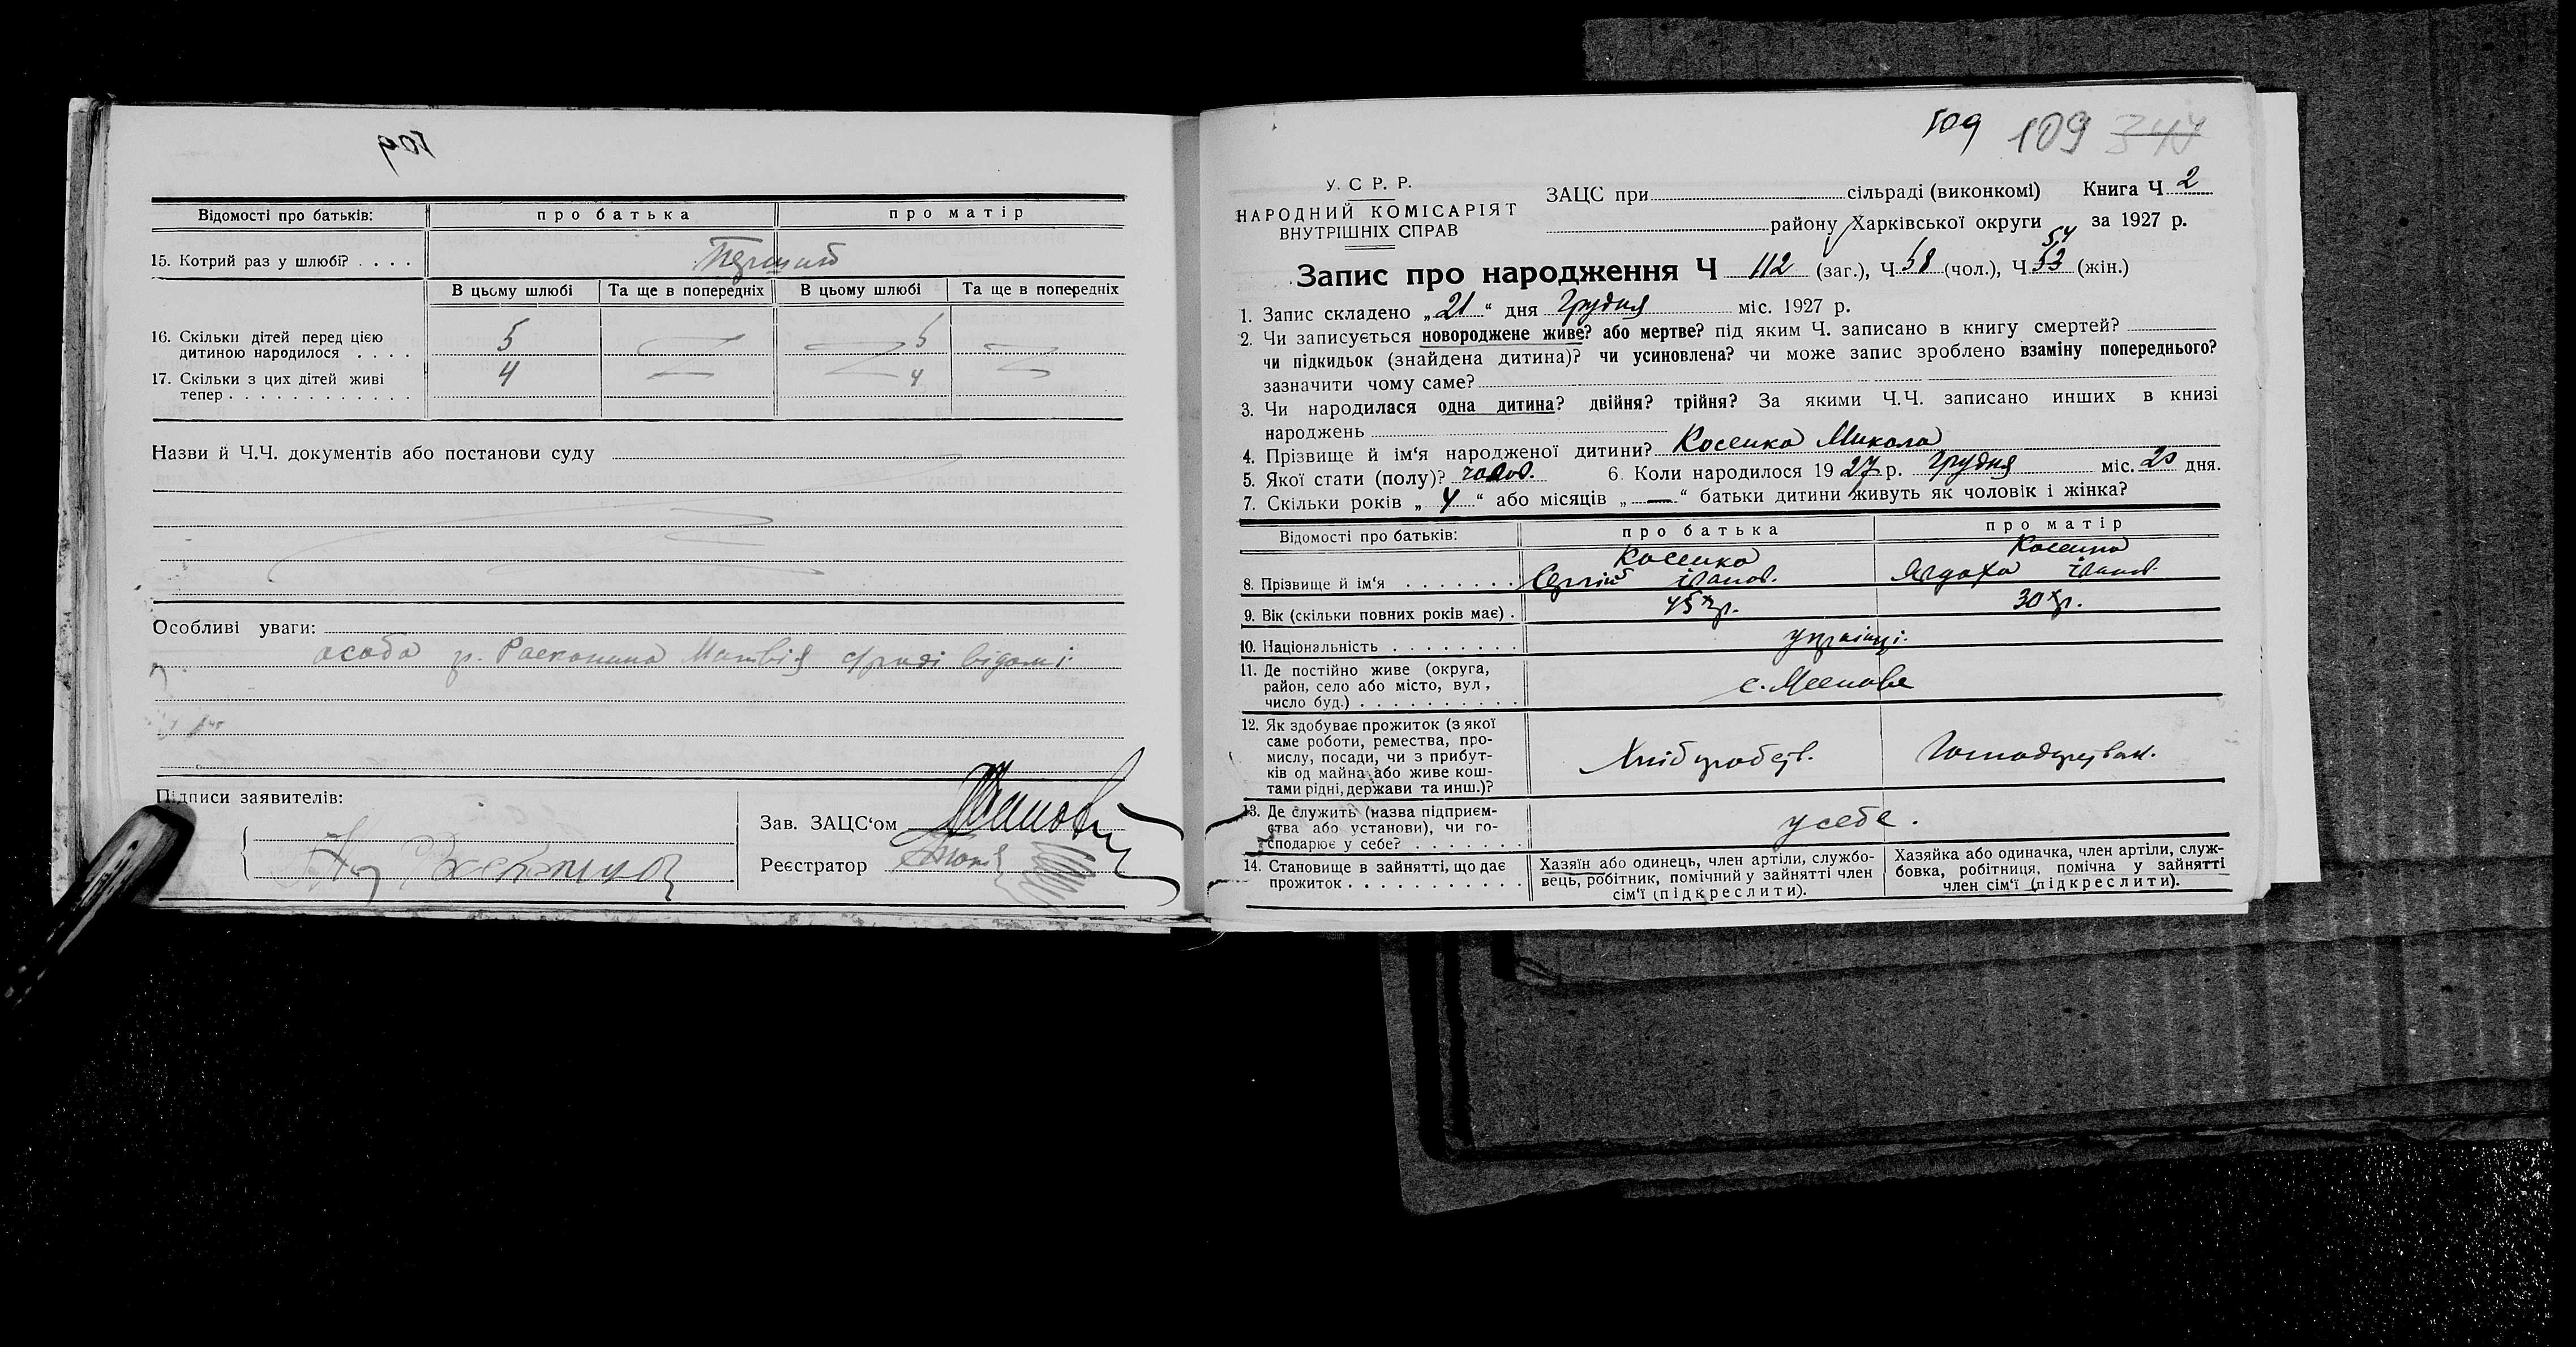 509
Відомості про батьків: про батька про матір
15. Котрий раз у шлюбі? . . . . Перший
В цьому шлюбі Та ще в попередніх В цьому шлюбі Та ще в попередніх
16. Скільки дітей перед цією
дитиною народилося . . . . 5 — 5 —
17. Скільки з цих дітей живі 4 — 4 —
тепер . . . . . . . . . . . .
Назви й Ч.Ч. документів або постанови суду
Особливі уваги:
особа гр. Матвія с/раді відомі.
Підписи заявителів:
Зав. ЗАЦС‘ом
Реєстратор
509 109 344
У. С. Р. Р.
НАРОДНИЙ КОМІСАРІЯТ
ВНУТРІШНІХ СПРАВ
ЗАЦС при сільраді (виконкомі) Книга Ч 2
району Харківської округи за 1927 р.
54
Запис про народження Ч 112 (заг.), Ч 58 (чол.), Ч 53 (жін.)
1. Запис складено „21“ дня Грудня міс. 1927 р.
2. Чи записується новороджене живе? або мертве? під яким Ч. записано в книгу смертей?
чи підкидьок (знайдена дитина)? чи усиновлена? чи може запис зроблено взаміну попереднього?
зазначити чому саме?
3. Чи народилася одна дитина? двійня? трійня? За якими Ч.Ч. записано инших в книзі
народжень
4. Прізвище й ім‘я народженої дитини? Косенко Микола
5. Якої стати (полу)? чолов. 6. Коли народилося 1927 р. Грудня міс. 20 дня.
7. Скільки років „4“ або місяців „—“ батьки дитини живуть як чоловік і жінка?
Відомості про батьків: про батька про матір
Косенко Косенко
8. Прізвище й ім‘я . . . . . . . Сергій іванов. Явдоха іванов.
9. Вік (скільки повних років має) . 45 р. 30 р.
10. Національність . . . . . . . . українці.
11. Де постійно живе (округа,
район, село або місто, вул.,
число буд.) . . . . . . . . . . с.
12. Як здобуває прожиток (з якої
саме роботи, ремества, про-
мислу, посади, чи з прибут-
ків од майна або живе кош-
тами рідні, держави та инш.)? Хліборобств. Господарюван.
13. Де служить (назва підприєм-
ства або установи), чи го-
сподарює у себе? . . . . . . . у себе.
14. Становище в зайнятті, що дає
прожиток . . . . . . . . . . .
Хазяїн або одинець, член артіли, службо-
вець, робітник, помічний у зайнятті член
сім‘ї (підкреслити).
Хазяйка або одиначка, член артіли, служ-
бовка, робітниця, помічна у зайнятті
член сім‘ї (підкреслити).